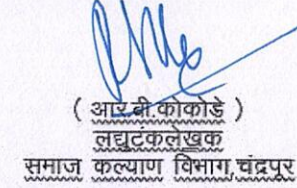 ( आर.बी.कोकोडे )
लघुटंकलेखक
समाज कल्याण विभाग,चंद्रपूर